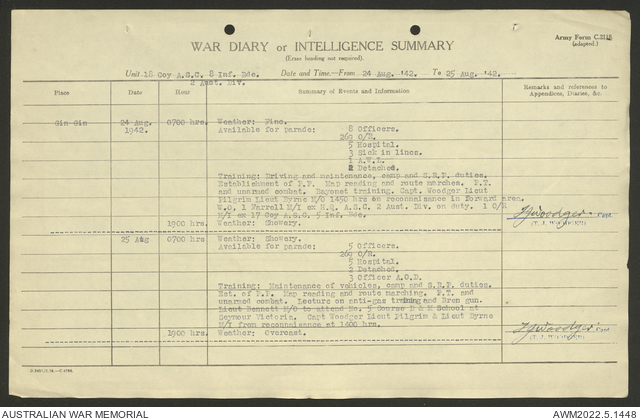 Army Form C.2118
(adapted.)
WAR DIARY or INTELLIGENCE SUMMARY
(Erase heading not required).
Unit 18 Coy A.S.C. 8 Inf. Bde. Date and Time.—From 24 Aug. '42. To 25 Aug. '42.
2 Aust. Div.
Place Date Hour Summary of Events and Information Remarks and references to Appendices, Diaries, &c.
Gin Gin 24 Aug. 0700 hrs. Weather: Fine.
1942. Available for parade: 8 Officers.
269 O/R.
5 Hospital.
3 Sick in lines.
1 A.W.L.
2 Detached.
Training: Driving and maintenance, camp and S.R.P. duties.
Establishment of P.P. Map reading and route marches. P.T.
and unarmed combat. Bayonet training. Capt. Woodger Lieut
Pilgrim Lieut Byrne M/O 1450 hrs on reconnaisance in forward area.
W.O. 1 Farrell M/I ex N.Q. A.S.C. 2 Aust. Div. on duty. 1 O/R
M/I ex 17 Coy A.S.C. 5 Inf. Bde.
1900 hrs. Weather: Showery.
TJWoodger Capt
(T.J. WOODGER)
25 Aug 0700 hrs Weather: Showery.
Available for parade: 5 Officers.
269 O/R.
5 Hospital.
2 Detached.
3 Officer A.O.D.
Training: Maintenance of vehicles, camp and S.R.P. duties.
Est. of P.P. Map reading and route marching. P.T. and
unarmed combat. Lecture on anti-gas training and Bren gun.
Lieut Bennett M/O to attend No. 5 Course D & M School at
Seymour Victoria. Capt Woodger Lieut Pilgrim & Lieut Byrne
M/I from reconaisance at 1400 hrs.
1900 hrs. Weather: Overcast.
TJWoodger Capt
(T.J. WOODGER)
AUSTRALIAN WAR MEMORIAL AWM2022.5.1448